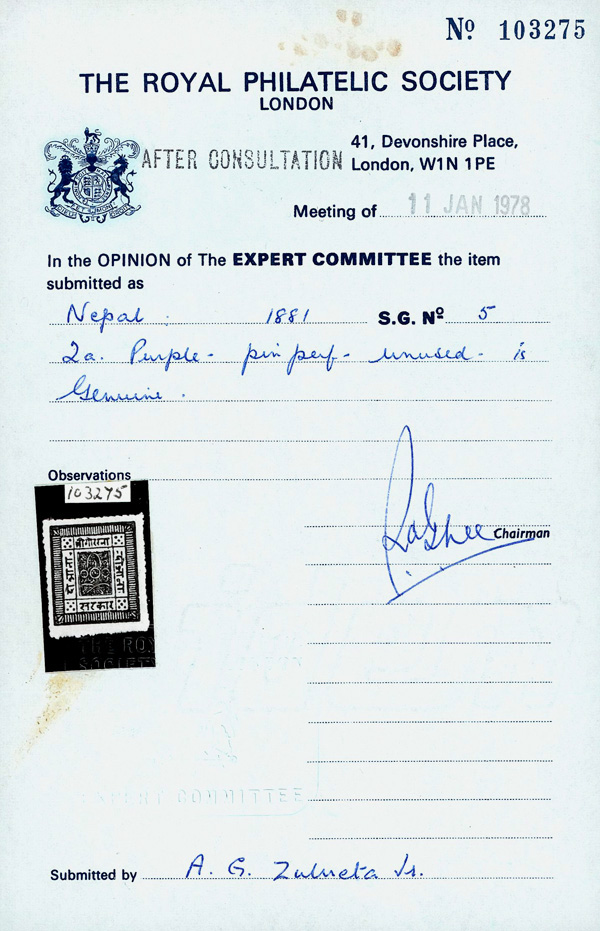 Nº 103275
THE ROYAL PHILATELIC SOCIETY
LONDON
AFTER CONSULTATION
41, Devonshire Place,
London, W1N 1PE
Meeting of 11 JAN 1978
In the OPINION of The EXPERT COMMITTEE the item
submitted as
Nepal 1881 S.G. Nº 5
2a. Purple - pin perf - unused - is
Genuine.
Observations
103275
Chairman
श्री गोरखा
सरकार
THE ROY
SOCIETY
EXPERT COMMITTEE
Submitted by A. G. Zulueta Jr.